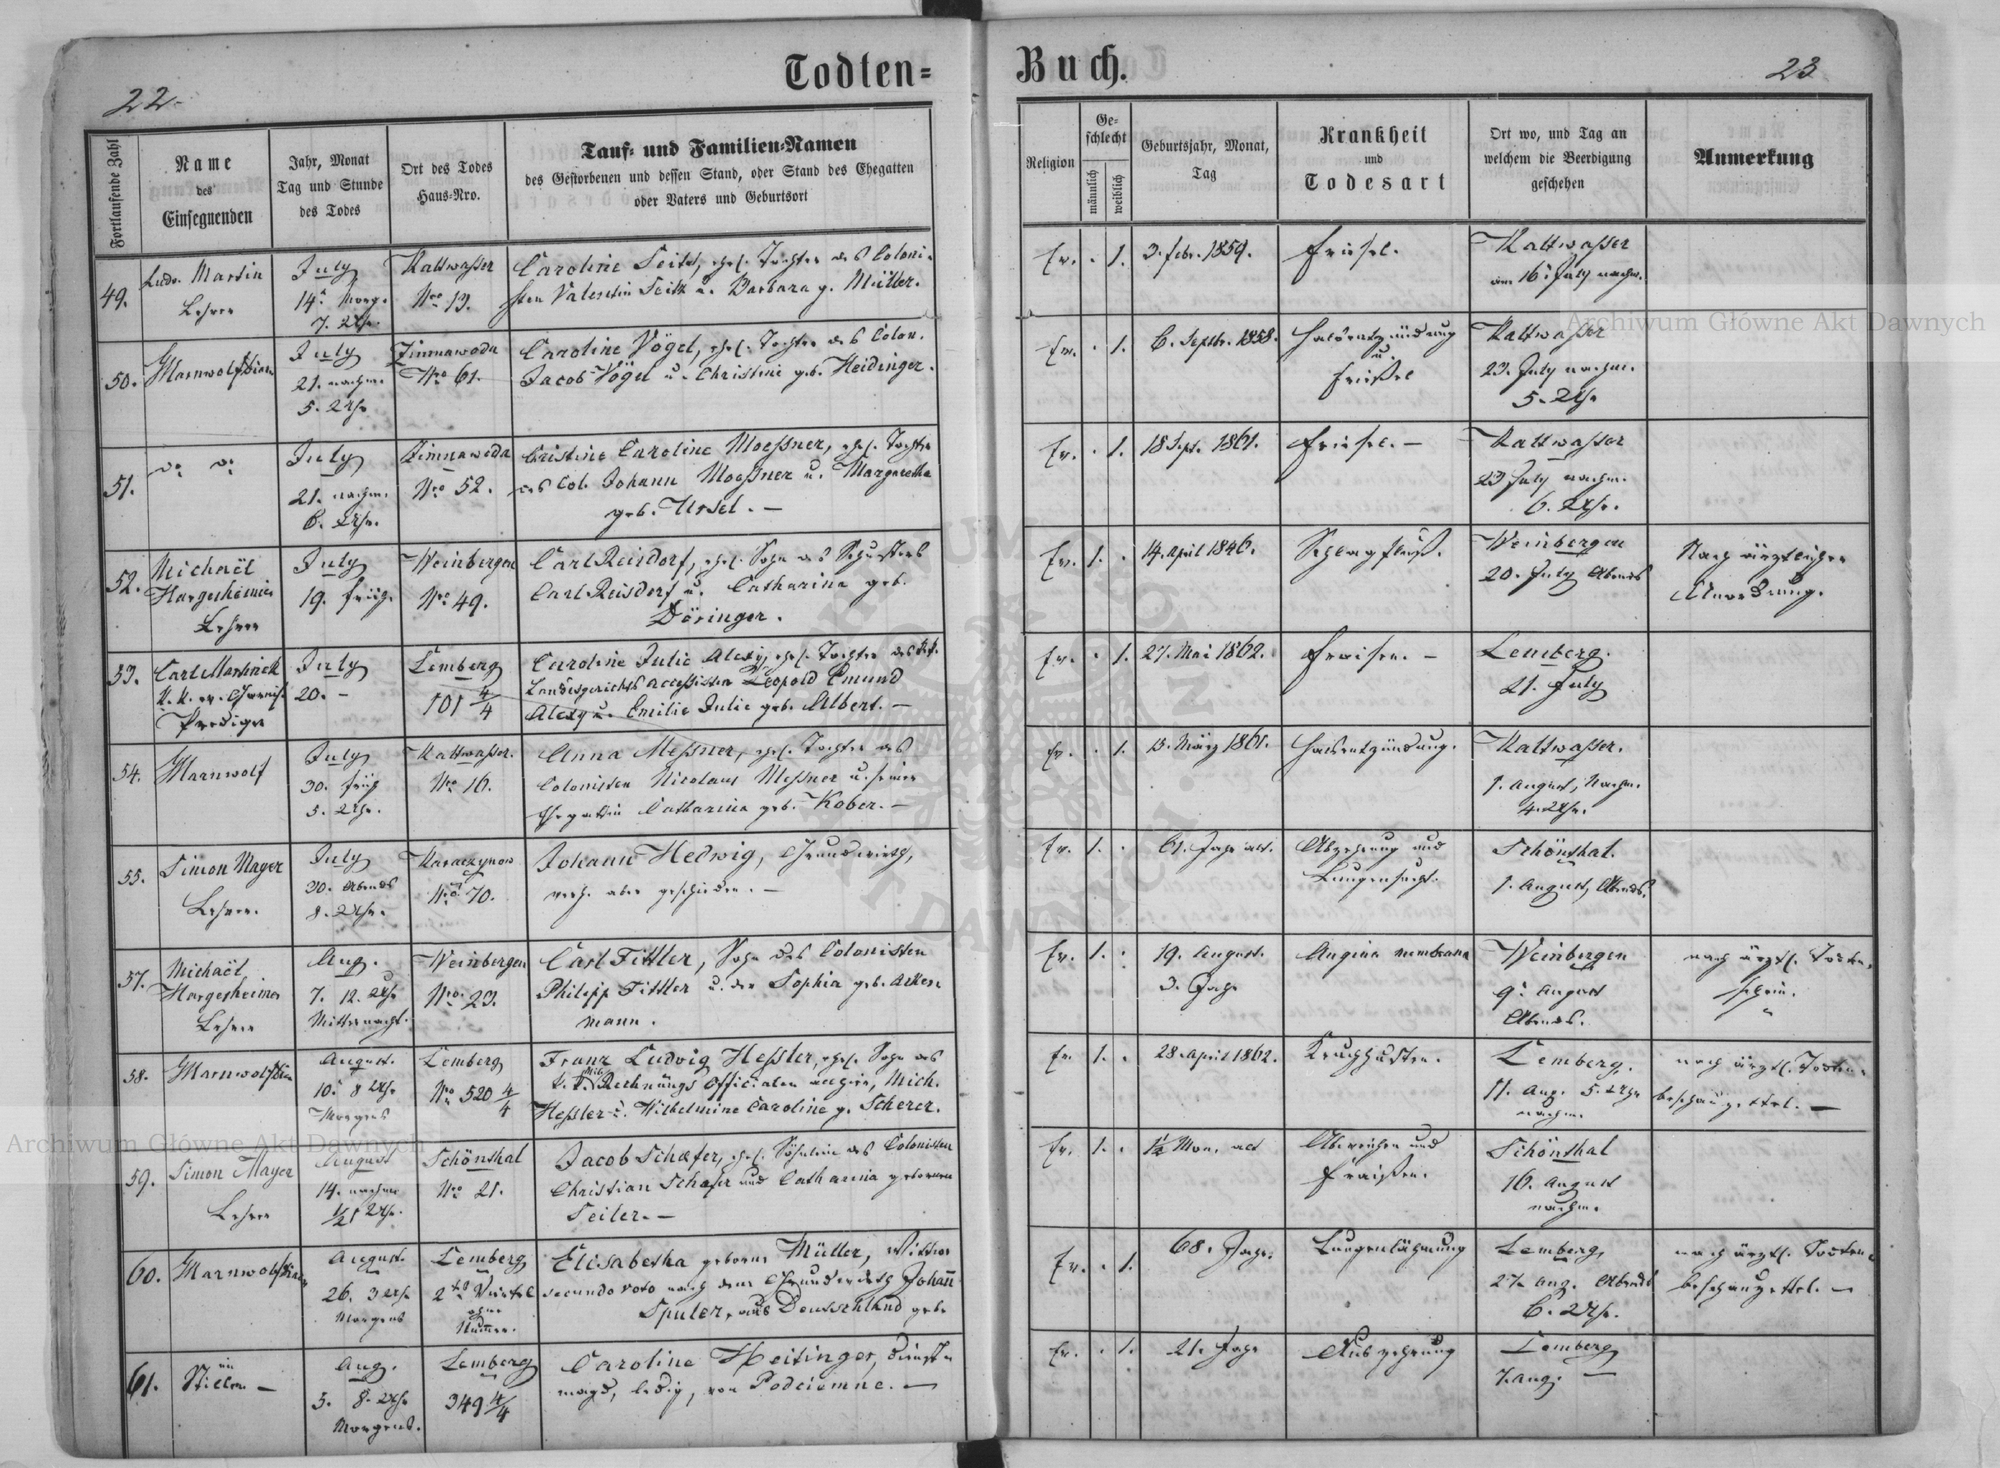 22.
Todten=
Fortlaufende Zahl
Name
des
Einsegnenden
Jahr, Monat
Tag und Stunde
des Todes
Ort des Todes
Haus=Nro.
Tauf= und Familien=Namen
des Gestorbenen und dessen Stand, oder Stand des Ehegatten
oder Vaters und Geburtsort
49.
Ludw. Martin
Lehrer
July
14. Morg.
7. Uhr.
Kaltwasser
Nro 13.
Caroline Seitz, ehel. Tochter des Coloni-
sten Valentin Seitz u. Barbara g. Müller.
50.
July
21. nachm.
5. Uhr
Zimnawoda
Nro 61.
Caroline Vögel, ehel. Tochter des Colon.
Jacob Vögel u. Christine geb. Heidinger.
51.
do do
July
21. nachm.
6. Uhr.
Zimnawoda
Nro 52.
Cristine Caroline Moeßner, ehel. Tochter
des Col. Johann Moeßner u. Margaretha
geb. Ursel. —
52.
Michaël
Hargesheimer
Lehrer
July
19. früh.
Weinbergen
Nro 49.
Carl Reisdorf, ehel. Sohn des Schusters
Carl Reisdorf u. Catharina geb.
Döringer.
53.
Carl Martinek
Prediger
July
20. -
Lemberg
101 4/4
Caroline Julie Alexy, ehel. Tochter des k.k.
Landesgerichts Accessisten Leopold Emund
Alexy u. Emilie Julie geb. Albert. —
54.
Marnwolf
July
30. früh
5. Uhr.
Kaltwasser.
Nro 16.
Anna Meßner, ehel. Tochter des
Colonisten Nicolaus Meßner u. seiner
Ehegattin Catharina geb. Kober. —
55.
Simon Mayer
Lehrer.
July
30. Abends
8. Uhr.
Karaczynow
Nro 70.
Johann Hedwig, Grundwirth,
verh. aber geschieden. —
57.
Michaël
Hargesheimer
Lehrer
Aug.
7. 12. Uhr
Mitternacht.
Weinbergen
Nro 23.
Carl Fittler, Sohn des Colonisten
Philipp Fittler u. der Sophia geb. Acker
mann.
58.
August.
10. 8 Uhr
Morgens
Lemberg
Nro 520 4/4
Franz Ludwig Heßler, ehel. Sohn des
k.k. Milit. Rechnungs Officialen Mich.
Heßler u. Wilhelmine Caroline g. Scherer.
59.
Simon Mayer
Lehrer
August
14. nachm
1/2 1 Uhr.
Schönthal
Nro 21.
Jacob Schaefer, ehel. Söhnlein des Colonisten
Christian Schäfer und Catharina gebornen
Seiler. —
60.
August.
26. 3 Uhr
Morgens
Lemberg
2tes Viertel
ohne
Numer.
Elisabetha geborne Müller, Wittwe
secundo voto nach dem Grundwirth Johann
Spuler, aus Deutschland geb.
61.
Stiller —
Aug.
5. 8. Uhr
Morgens.
Lemberg
349 4/4
Caroline Heitinger, Dienst=
magd, ledig, von Podciemne. —
Buch.
23
Religion
Ge=
schlecht
männlich
weiblich
Geburtsjahr, Monat,
Tag
Krankheit
und
Todesart
Ort wo, und Tag an
welchem die Beerdigung
geschehen
Anmerkung
Ev. . 1. 3. Febr. 1859.
Friesel.
Kaltwasser
am 16. July nachm.
Ev. . 1. 6. Septbr. 1858.
Halsentzündung
u.
Frießel
Kaltwasser
23. July nachm.
5. Uhr
Ev. . 1. 18 Sept. 1861.
Friesel. —
Kaltwasser
23 July nachm.
6. Uhr.
Ev. 1. . 14. April 1846.
Schlagfluß.
Weinbergen
20. July Abends
Nach ärztlicher
Anordnung.
Ev. . 1. 27. Mai 1862.
Fraisen. —
Lemberg.
21. July
Ev. . 1. 13. März 1861.
Halsentzündung.
Kaltwasser.
1. August, Nachm.
4. Uhr.
Ev. 1. . 61. Jahr alt.
Abzehrung und
Lungensucht.
Schönthal.
1. August, Abends.
Ev. 1. . 19. August.
3. Jahr
Angina membrana
Weinbergen
9. August
Abends.
nach ärztl. Todten=
schein.
Ev. 1. . 28. April 1862.
Keuchhusten.
Lemberg.
11. Aug. 5. Uhr
nachm.
nach ärztl. Todten=
beschauzettel. —
Ev. 1. . 1 1/2 Mon. alt
Abweichen und
Fraißen.
Schönthal
16. August
nachm.
Ev. . 1. 68. Jahr.
Lungenlähmung
Lemberg,
27. Aug. Abends
6. Uhr.
nach ärztl. Todten=
beschauzettel. —
Ev. . 1. 21. Jahr
Auszehrung
Lemberg
7. Aug. —
Archiwum Główne Akt Dawnych
Archiwum Główne Akt Dawnych